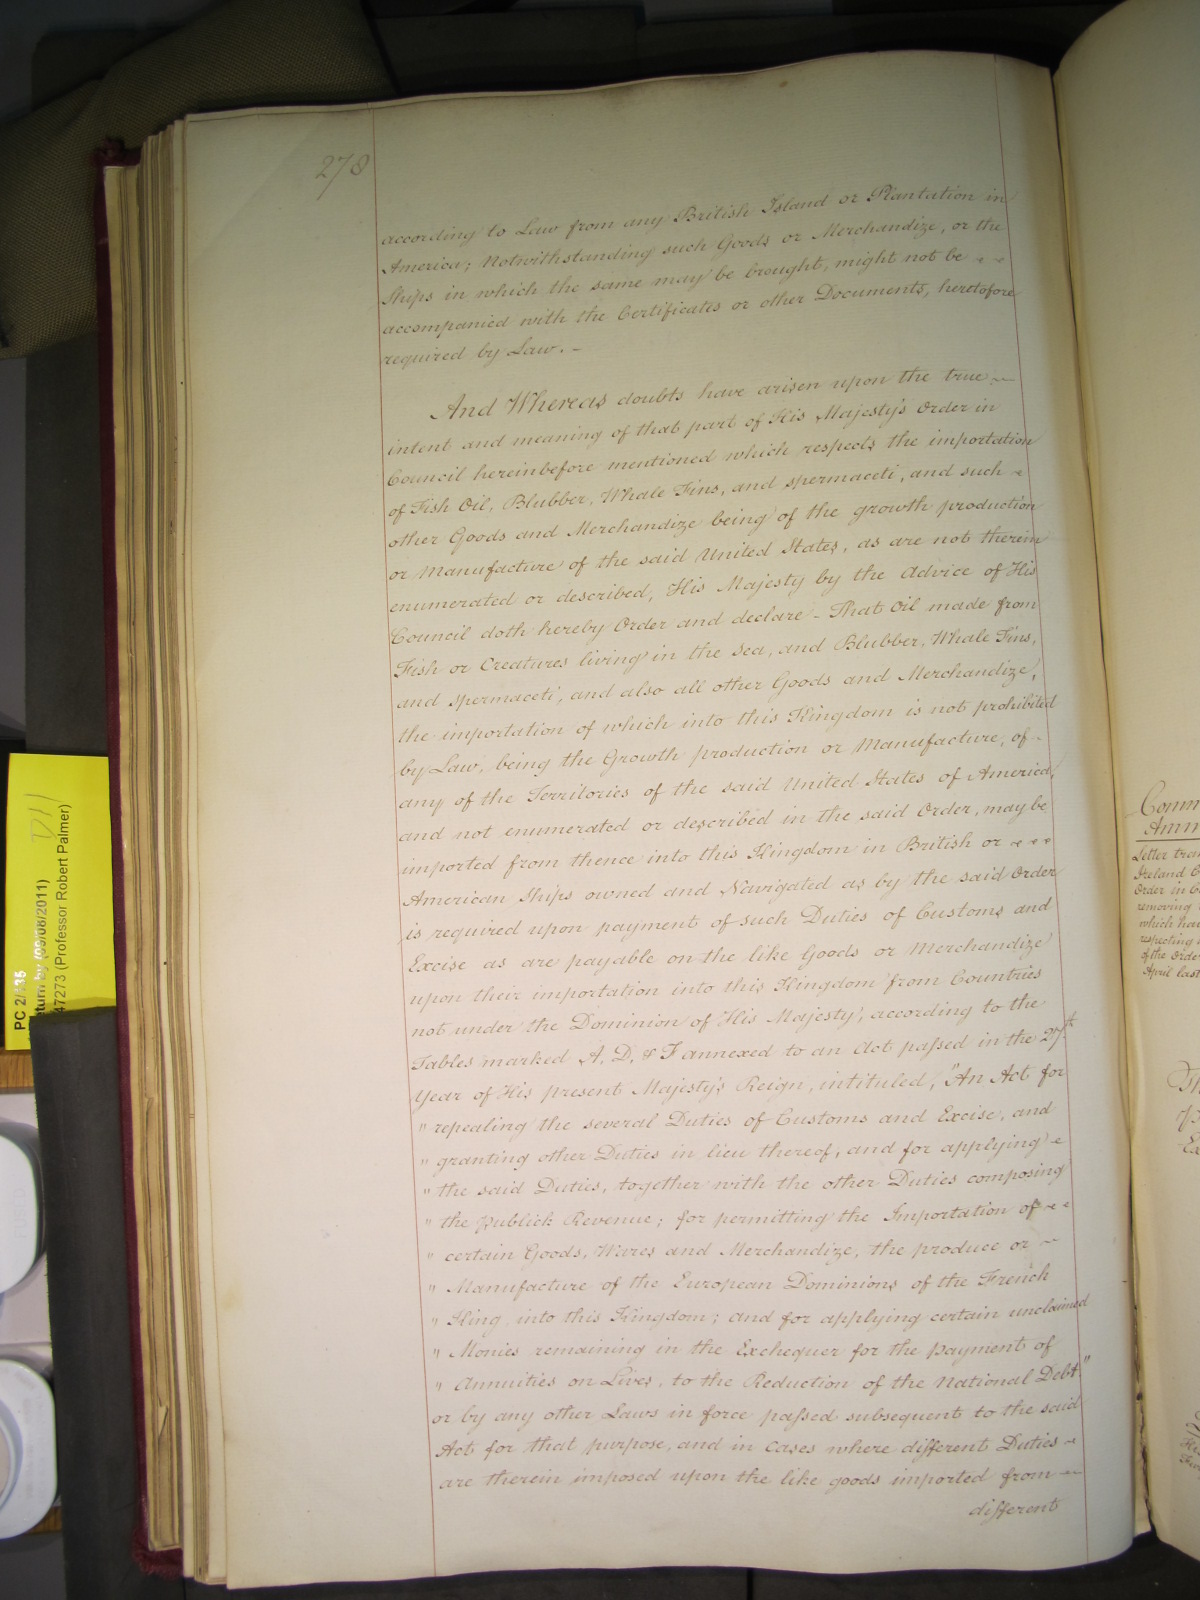 278
according to Law from any British Island or Plantation in
America; Notwithstanding such Goods or Merchandize, or the
Ships in which the same may be brought, might not be
accompanied with the Certificates or other Documents, heretofore
required by Law. -
And Whereas doubts have arisen upon the true
intent and meaning of that part of His Majesty's Order in
Council hereinbefore mentioned which respects the importation
of Fish Oil, Blubber, Whale Fins, and spermaceti, and such
other Goods and Merchandize being of the growth production
or Manufacture of the said United States, as are not therein
enumerated or described, His Majesty by the Advice of His
Council doth hereby Order and declare - That Oil made from
Fish or Creatures living in the Sea, and Blubber, Whale Fins,
and spermaceti, and also all other Goods and Merchandize,
the importation of which into this Kingdom is not prohibited
by Law, being the Growth production or Manufacture, of
any of the Territories of the said United States of America,
and not enumerated or described in the said Order, may be
imported from thence into this Kingdom in British or
American Ships owned and Navigated as by the said Order
is required upon payment of such Duties of Customs and
Excise as are payable on the like Goods or Merchandize
upon their importation into this Kingdom from Countries
not under the Dominion of His Majesty, according to the
Tables marked A. D. & F annexed to an Act passed in the 27th
Year of His present Majesty's Reign, intituled, "An Act for
" repealing the several Duties of Customs and Excise, and
" granting other Duties in lieu thereof, and for applying
" the said Duties, together with the other Duties composing
" the publick Revenue; for permitting the Importation of
" certain Goods, Wares and Merchandize, the produce or
" Manufacture of the European Dominions of the French
" King, into this Kingdom; and for applying certain unclaimed
" Monies remaining in the Exchequer for the payment of
" Annuities on Lives, to the Reduction of the National Debt"
or by any other Laws in force passed subsequent to the said
Act for that purpose, and in cases where different Duties
are therein imposed upon the like goods imported from
different
PC 2/135
turn by (09/08/2011)
47273 (Professor Robert Palmer)
D11
Comm
Amm
Letter tran
Ireland
Order in
removing
which hav
respecting
of the Orde
April last